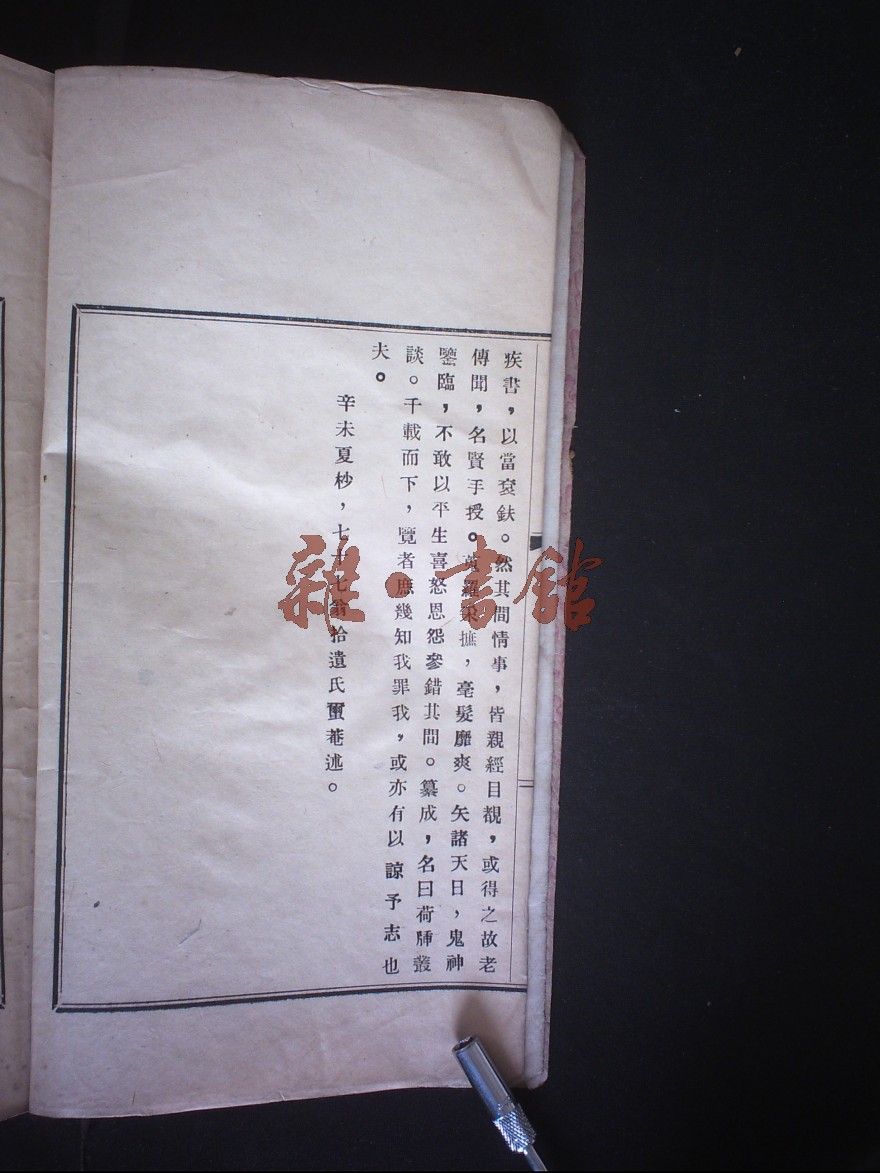 疾書，以當袞鈇。然其間情事，皆親經目覩，或得之故老
傳聞，名賢手授。羅撫，毫髮靡爽。矢諸天日，鬼神
鑒臨，不敢以平生喜怒恩怨參錯其間。纂成，名曰荷牐叢
談。千載而下，覽者庶幾知我罪我，或亦有以諒予志也
夫。
辛未夏杪，七十七翁拾遺氏蠒菴述。
雜·書館